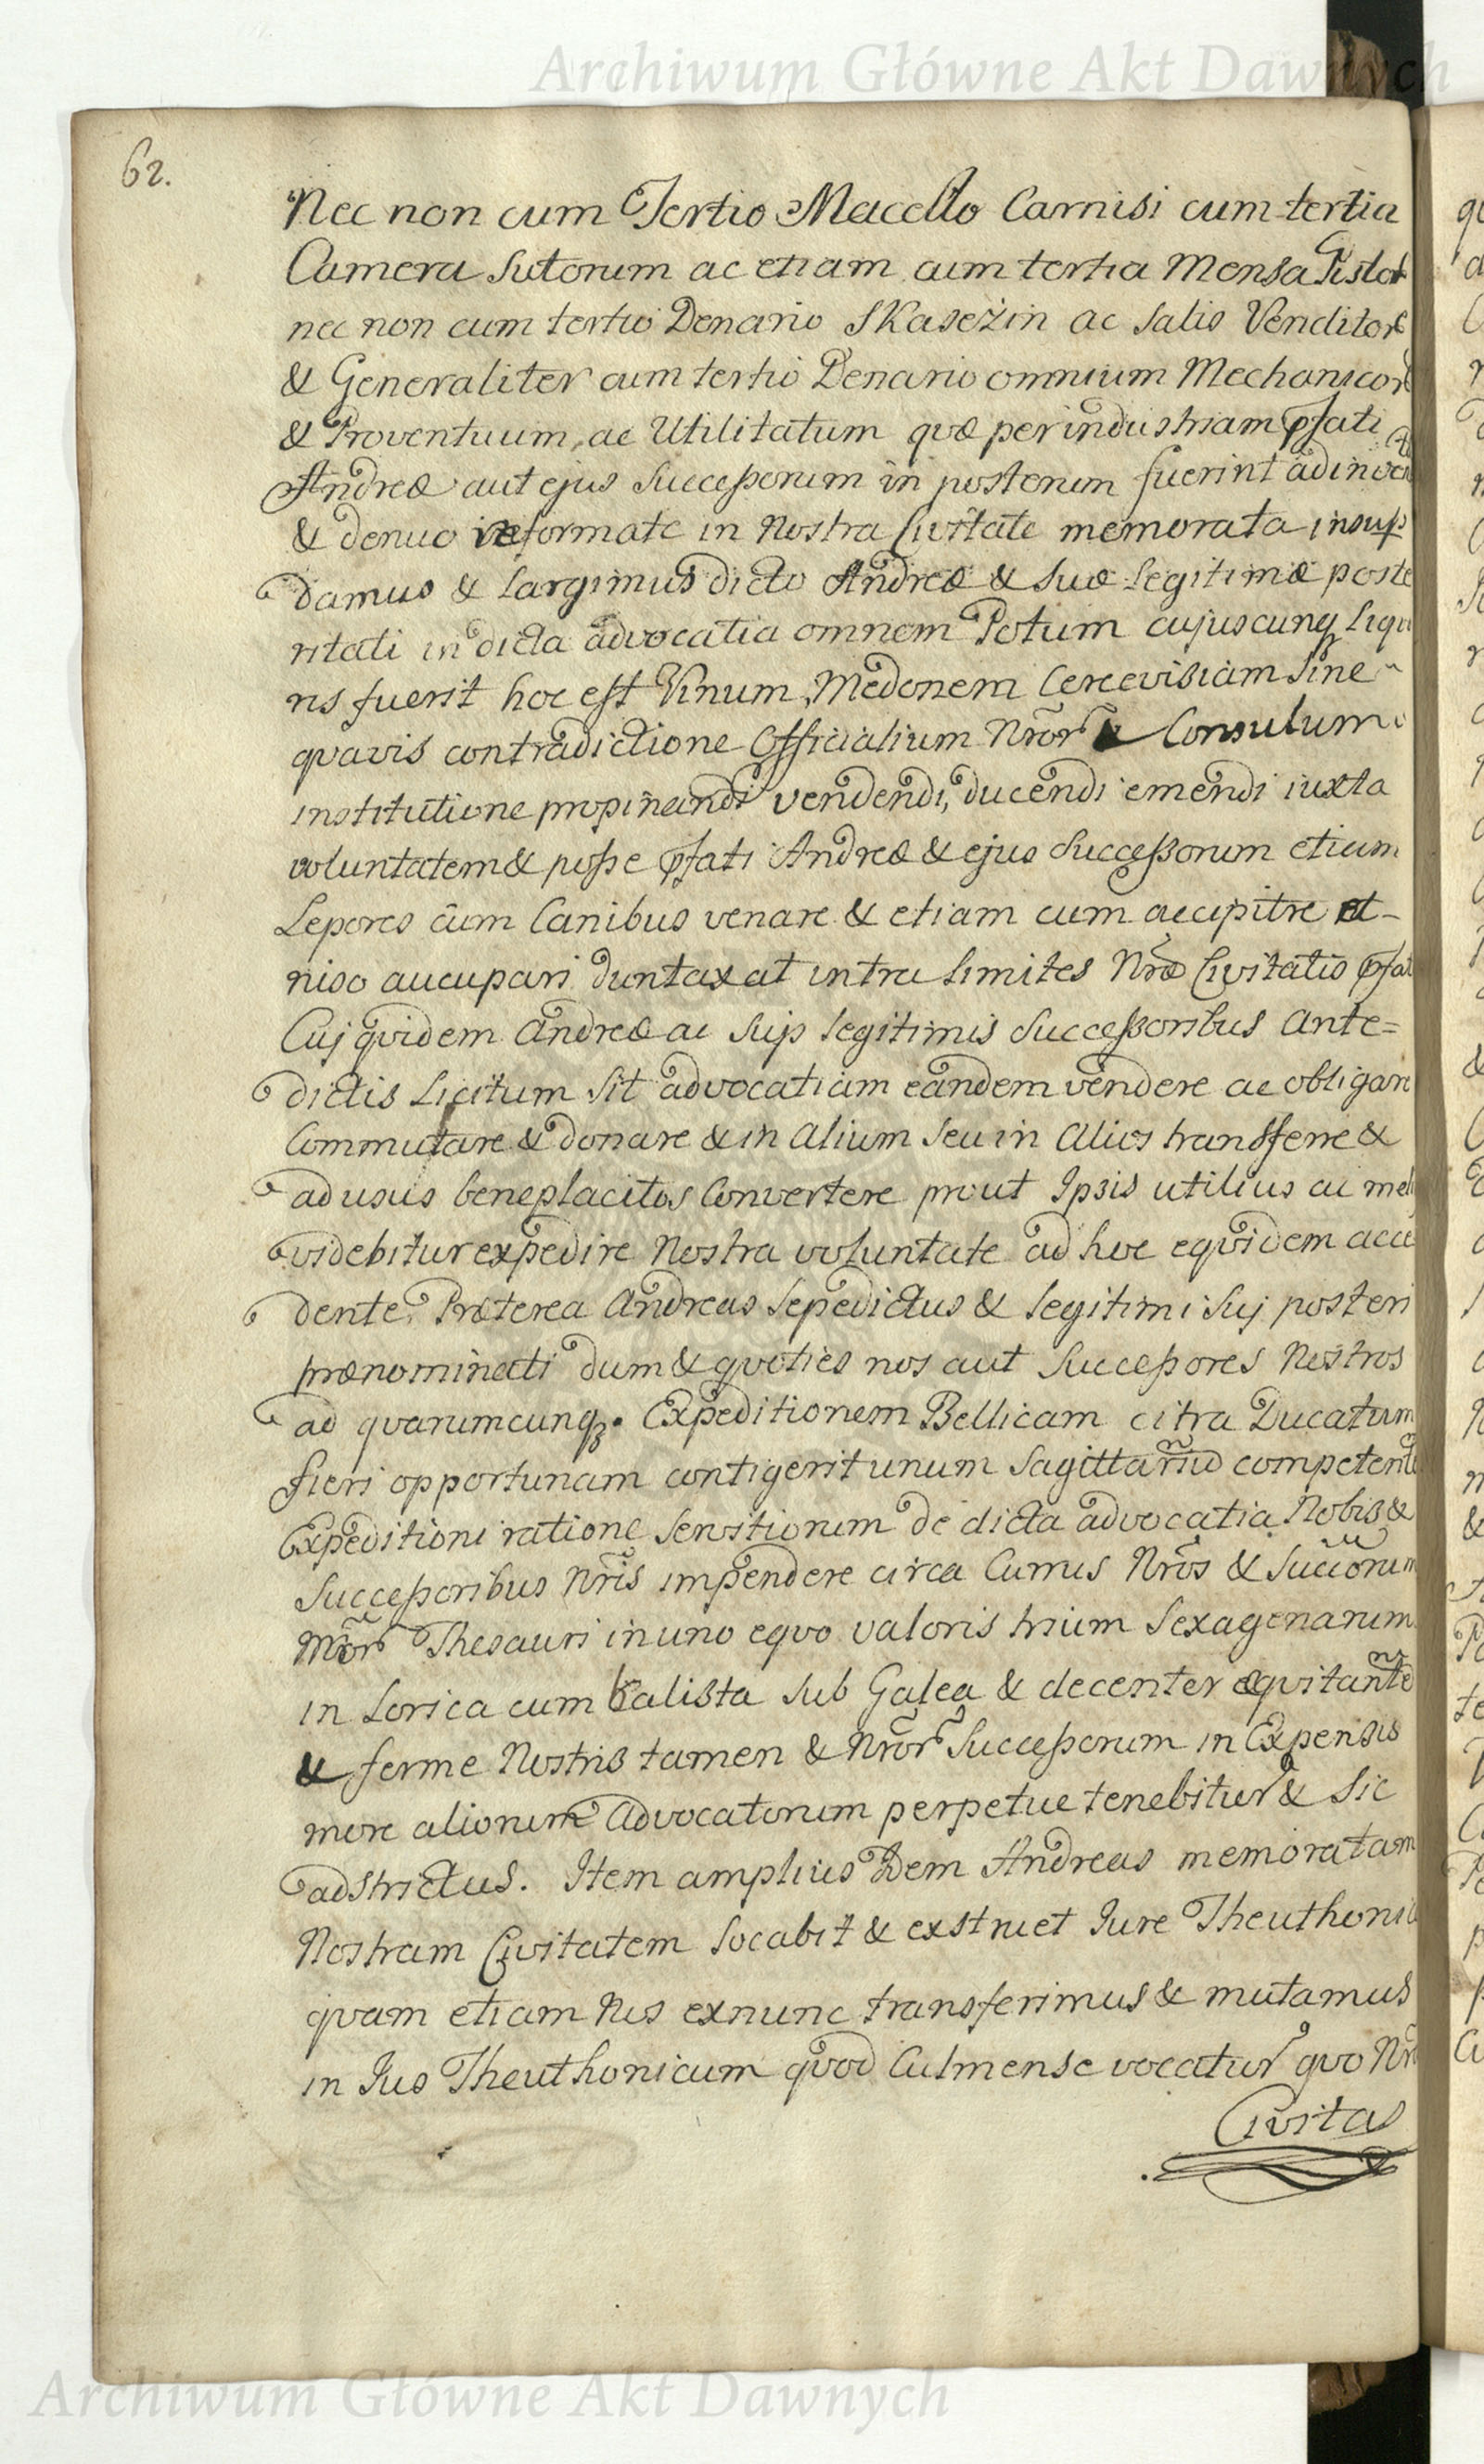 Archiwum Główne Akt Dawnych
62.
Nec non cum Tertio Macello Carnisi cum tertia
Camera Sutorum ac etiam cum tertia Mensa Pistor
nec non cum tertio Denario SKaseżin ac Salis Venditor
& Generaliter cum tertio Denario omnium Mechanicor
& Proventuum, ac Utilitatum quæ per industriam pfati
Andreæ aut ejus Succeßorum in posterum fuerint adinven
& denuo reformate in Nostra Civitate memorata insup
damus & largimus dicto Andreæ & suæ legitimæ poste
ritati in dicta advocatia omnem Potum cujuscunq liqu
ris fuerit hoc est Vinum, Medonem Cerevisiam Sine
quavis contradictione Officialium Nror & Consulum
institutione propinandi vendendi, ducendi emendi iuxta
voluntatem & poße pfati Andreæ & ejus Succeßorum etiam
Lepores cum Canibus venare & etiam cum accipitre et
niso aucupari duntaxat intra limites Nræ Civitatis pfat
Cuj quidem Andreæ ac Suis legitimis Succeßoribus Ante=
dictis Licitum Sit advocatiam eandem vendere ac obligare
Commutare & donare & in Alium Seu in Alios transferre &
ad usus beneplacitos Convertere prout Ipsis utilius ac mel
videbitur expedire Nostra voluntate ad hoc equidem acce
dente. Præterea Andreas Sepedictus & legitimi Suj posteri
prænominati dum & quoties nos aut Succeßores Nostros
ad quarumcunq. Expeditionem Bellicam citra Ducatum
fieri opportunam contigerit unum Sagittariũ competent
Expeditioni ratione Servitiorum de dicta advocatia Nobis &
Succeßoribus Nris impendere circa Currus Nros & Succorum
Nror Thesauri in uno equo valoris trium Sexagenarum
in Lorica cum balista Sub Galea & decenter equitante
& ferme Nostris tamen & Nror Succeßorum in Expensis
more aliorum Advocatorum perpetue tenebitur & Sic
adstrictus. Item amplius Idem Andreas memoratam
Nostram Civitatem locabit & exstruet Iure Theuthoni
quam etiam Nos exnunc transferimus & mutamus
in Ius Theuthonicum quod Culmense vocatur quo Nr
Civitas
Archiwum Główne Akt Dawnych